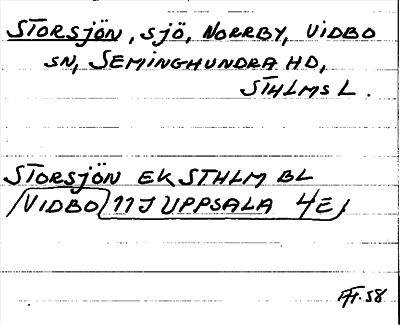 STORSJÖN, SJÖ, NORRBY, VIDBO
SN, SEMINGHUNDRA HD,
STHLMS L.
STORSJÖN EK STHLM BL
VIDBO 11J UPPSALA 4E
58